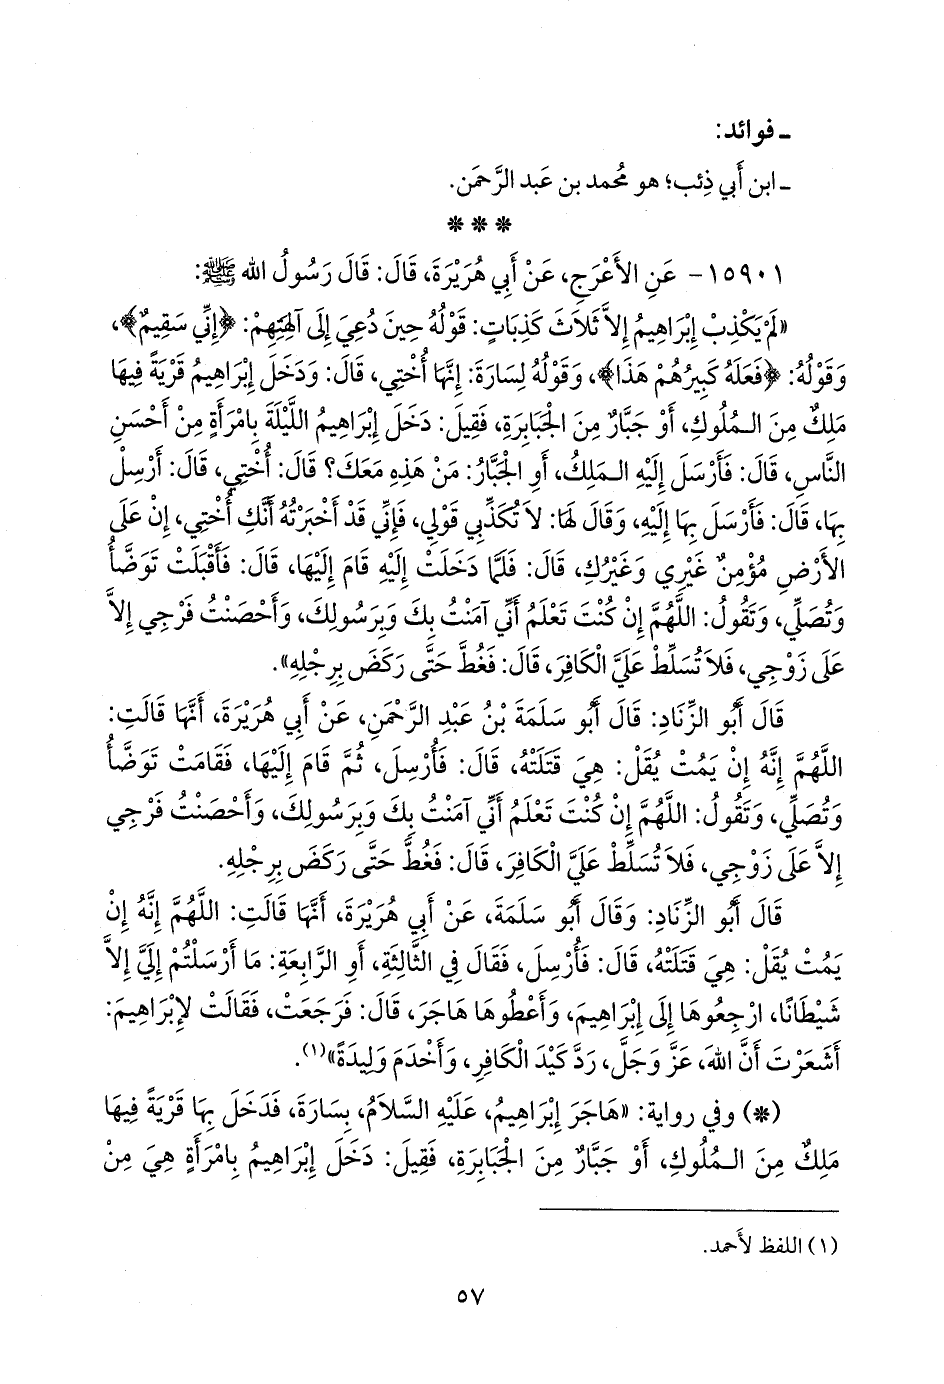 ـ فوائد:
ـ ابن أَبي ذِئب؛ هو مُحمد بن عَبد الرَّحمَن.
* * *
١٥٩٠١- عَنِ الأَعْرَجِ، عَنْ أَبِي هُرَيْرَةَ، قَالَ: قَالَ رَسُولُ الله ﷺ:
«لَمْ يَكْذِبْ إِبْرَاهِيمُ إِلاَّ ثَلاَثَ كَذِبَاتٍ: قَوْلُهُ حِينَ دُعِيَ إِلَى آلِهَتِهِمْ: ﴿إِنِّي سَقِيمٌ﴾،
وَقَوْلُهُ: ﴿فَعَلَهُ كَبِيرُهُمْ هَذَا﴾، وَقَوْلُهُ لِسَارَةَ: إِنَّهَا أُخْتِي، قَالَ: وَدَخَلَ إِبْرَاهِيمُ قَرْيَةً فِيهَا
مَلِكٌ مِنَ الـمُلُوكِ، أَوْ جَبَّارٌ مِنَ الْجَبَابِرَةِ، فَقِيلَ: دَخَلَ إِبْرَاهِيمُ اللَّيْلَةَ بِامْرَأَةٍ مِنْ أَحْسَنِ
النَّاسِ، قَالَ: فَأَرْسَلَ إِلَيْهِ الـمَلِكُ، أَوِ الْجَبَّارُ: مَنْ هَذِهِ مَعَكَ؟ قَالَ: أُخْتِي، قَالَ: أَرْسِلْ
بِهَا، قَالَ: فَأَرْسَلَ بِهَا إِلَيْهِ، وَقَالَ لَهَا: لاَ تُكَذِّبِي قَوْلِي، فَإِنِّي قَدْ أَخْبَرْتُهُ أَنَّكِ أُخْتِي، إِنْ عَلَى
الأَرْضِ مُؤْمِنٌ غَيْرِي وَغَيْرُكِ، قَالَ: فَلَمَّا دَخَلَتْ إِلَيْهِ قَامَ إِلَيْهَا، قَالَ: فَأَقْبَلَتْ تَوَضَّأُ
وَتُصَلِّي، وَتَقُولُ: اللَّهُمَّ إِنْ كُنْتَ تَعْلَمُ أَنِّي آمَنْتُ بِكَ وَبِرَسُولِكَ، وَأَحْصَنْتُ فَرْجِي إِلاَّ
عَلَى زَوْجِي، فَلاَ تُسَلِّطْ عَلَيَّ الْكَافِرَ، قَالَ: فَغُطَّ حَتَّى رَكَضَ بِرِجْلِهِ».
قَالَ أَبُو الزِّنَادِ: قَالَ أَبُو سَلَمَةَ بْنُ عَبْدِ الرَّحْمَنِ، عَنْ أَبِي هُرَيْرَةَ، أَنَّهَا قَالَتِ:
اللَّهُمَّ إِنَّهُ إِنْ يَمُتْ يُقَلْ: هِيَ قَتَلَتْهُ، قَالَ: فَأُرْسِلَ، ثُمَّ قَامَ إِلَيْهَا، فَقَامَتْ تَوَضَّأُ
وَتُصَلِّي، وَتَقُولُ: اللَّهُمَّ إِنْ كُنْتَ تَعْلَمُ أَنِّي آمَنْتُ بِكَ وَبِرَسُولِكَ، وَأَحْصَنْتُ فَرْجِي
إِلاَّ عَلَى زَوْجِي، فَلاَ تُسَلِّطْ عَلَيَّ الْكَافِرَ، قَالَ: فَغُطَّ حَتَّى رَكَضَ بِرِجْلِهِ.
قَالَ أَبُو الزِّنَادِ: وَقَالَ أَبُو سَلَمَةَ، عَنْ أَبِي هُرَيْرَةَ، أَنَّهَا قَالَتِ: اللَّهُمَّ إِنَّهُ إِنْ
يَمُتْ يُقَلْ: هِيَ قَتَلَتْهُ، قَالَ: فَأُرْسِلَ، فَقَالَ فِي الثَّالِثَةِ، أَوِ الرَّابِعَةِ: مَا أَرْسَلْتُمْ إِلَيَّ إِلاَّ
شَيْطَانًا، ارْجِعُوهَا إِلَى إِبْرَاهِيمَ، وَأَعْطُوهَا هَاجَرَ، قَالَ: فَرَجَعَتْ، فَقَالَتْ لإِبْرَاهِيمَ:
أَشَعَرْتَ أَنَّ اللهَ، عَزَّ وَجَلَّ، رَدَّ كَيْدَ الْكَافِرِ، وَأَخْدَمَ وَلِيدَةً»(١).
(*) وفي رواية: «هَاجَرَ إِبْرَاهِيمُ، عَلَيْهِ السَّلاَمُ، بِسَارَةَ، فَدَخَلَ بِهَا قَرْيَةً فِيهَا
مَلِكٌ مِنَ الـمُلُوكِ، أَوْ جَبَّارٌ مِنَ الْجَبَابِرَةِ، فَقِيلَ: دَخَلَ إِبْرَاهِيمُ بِامْرَأَةٍ هِيَ مِنْ
(١) اللفظ لأَحمد.
٥٧